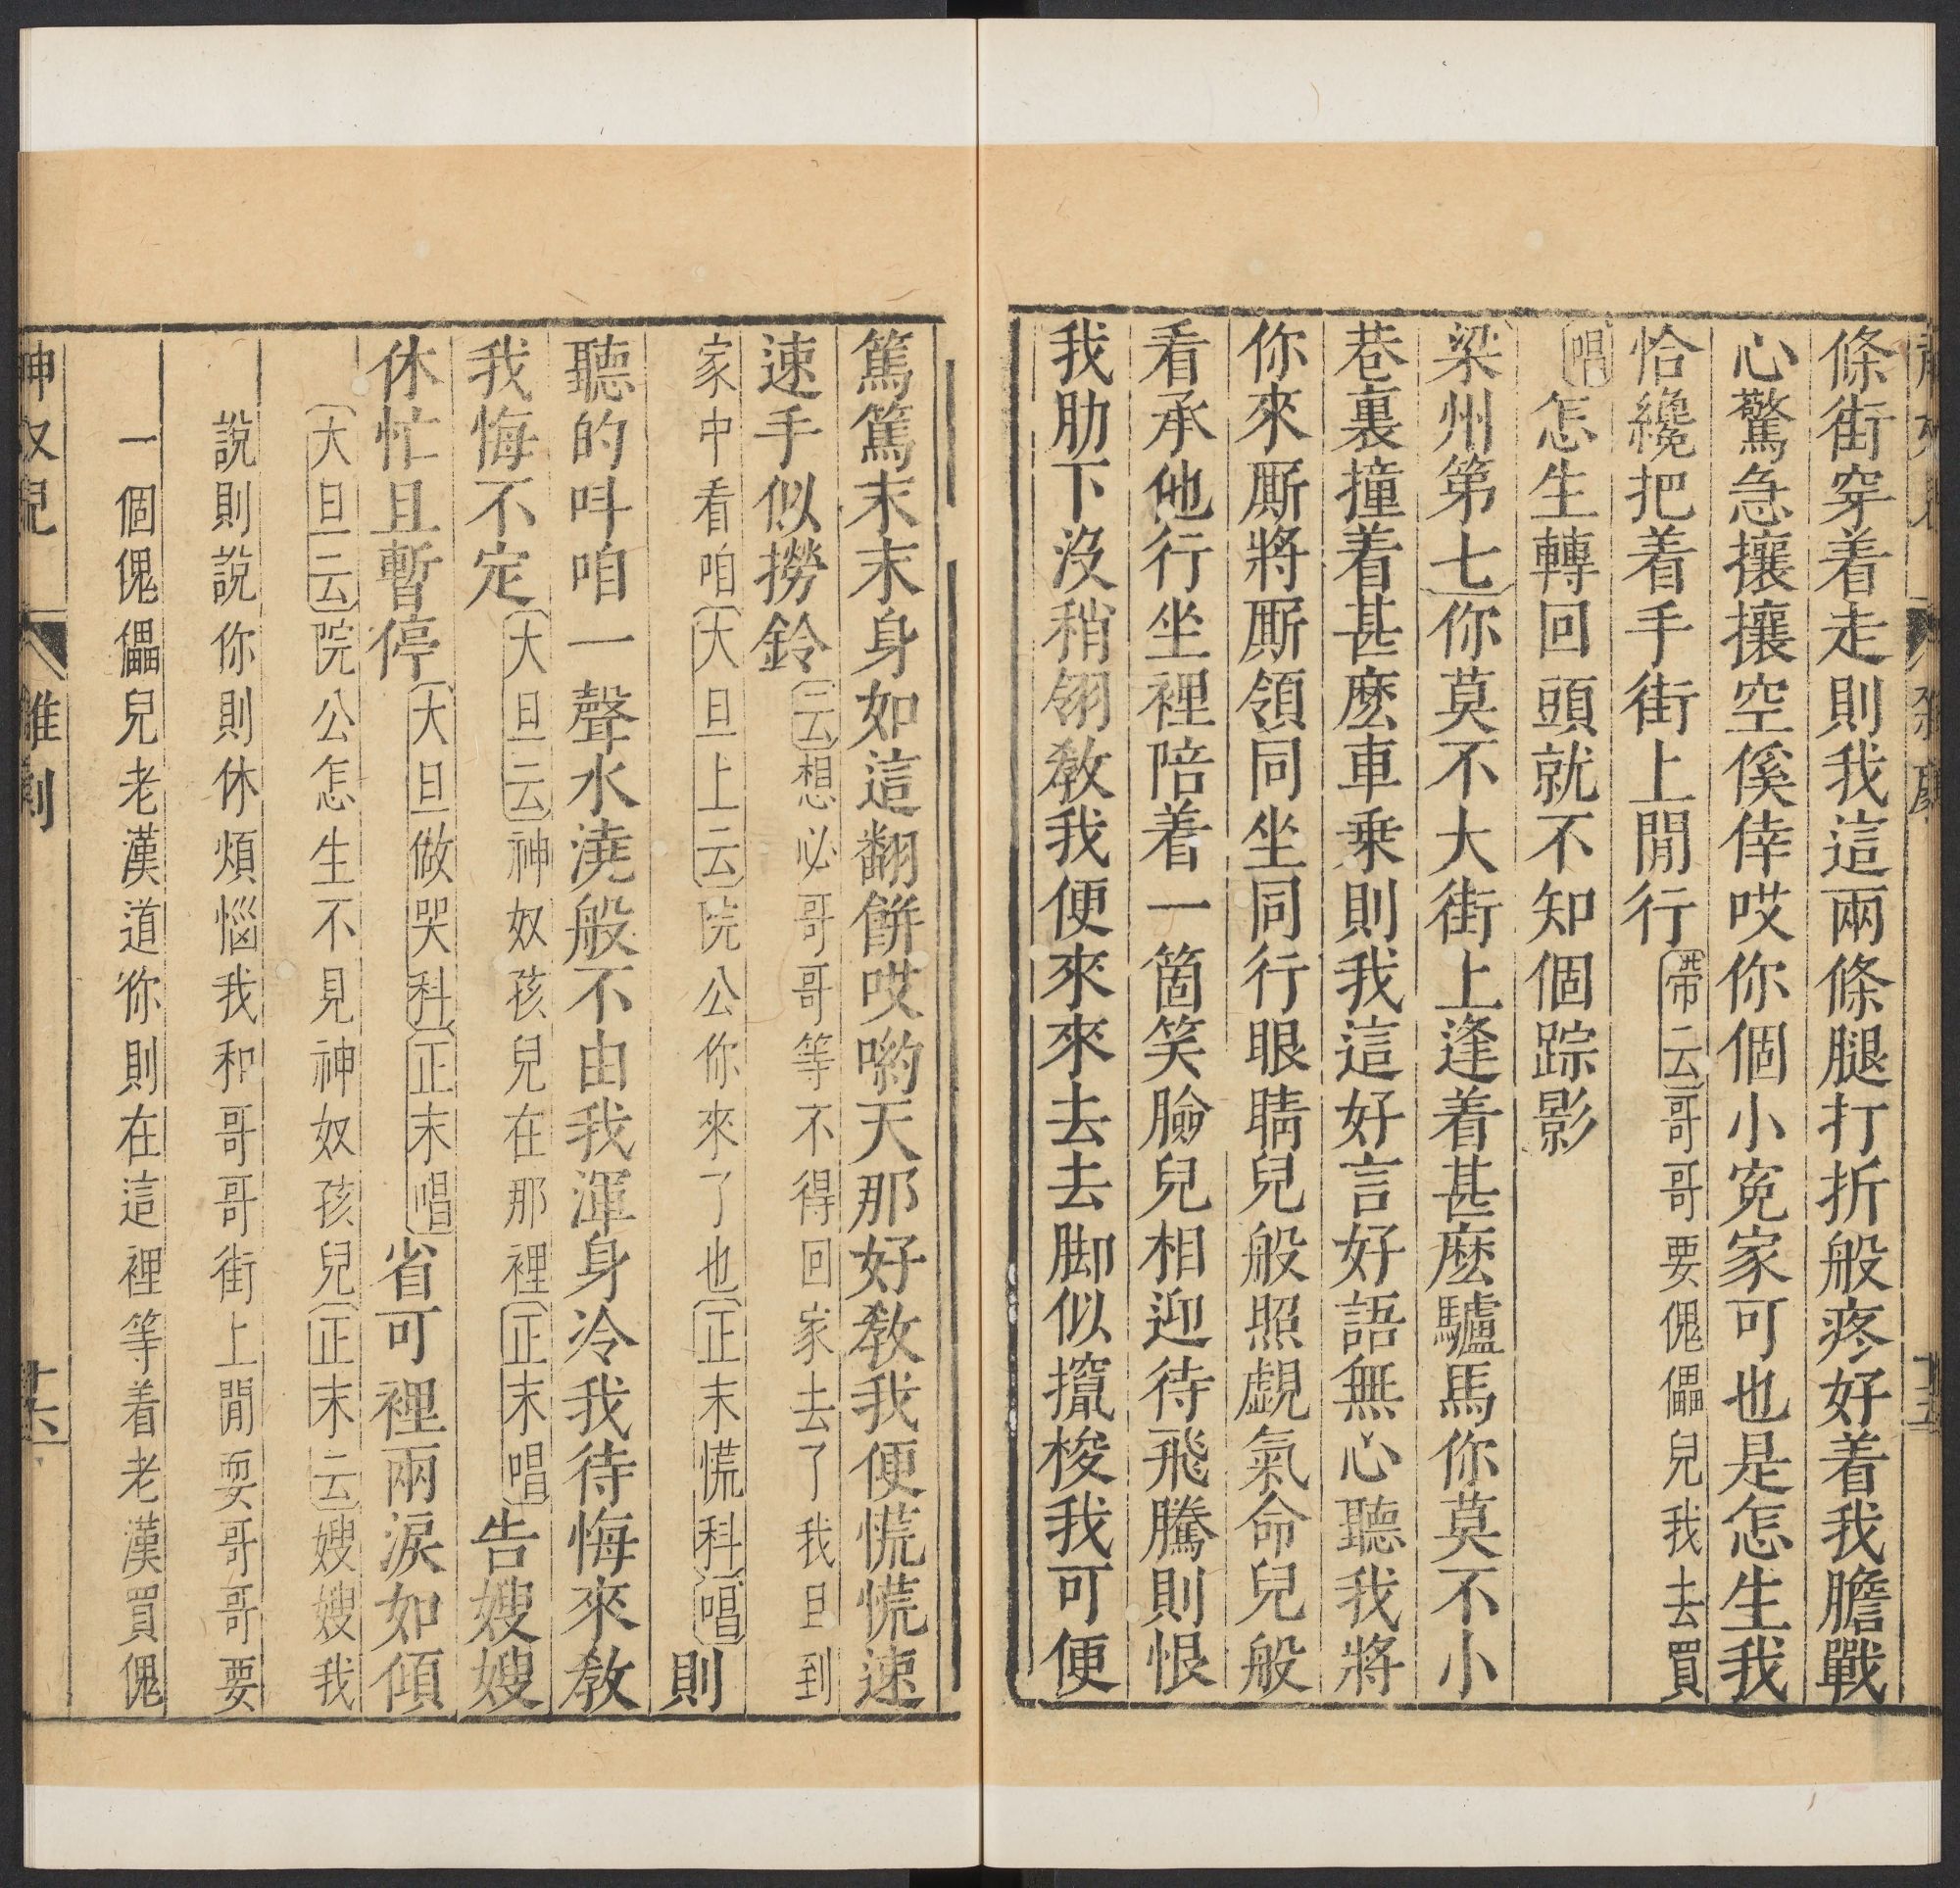 條街穿着走則我這兩條腿打折般疼好着我膽戰
心驚急攘攘空傒倖哎你個小寃家可也是怎生我
恰纔把着手街上閒行〔帶云〕哥哥要傀儡兒我去買
〔唱〕怎生轉回頭就不知個踪影
梁州第七〕你莫不大街上逢着甚麽驢馬你莫不小
巷裏撞着甚麽車乗則我這好言好語無心聽我將
你來厮將厮領同坐同行眼睛兒般照覷氣命兒般
看承他行坐裡陪着一箇笑臉兒相迎待飛騰則恨
我肋下沒稍翎教我便來來去去脚似攛梭我可便
篤篤末末身如這翻餅哎喲天那好教我便慌慌速
速手似撈鈴〔云〕想必哥哥等不得回家去了我且到
家中看咱〔大旦上云〕院公你來了也〔正末慌科〕〔唱〕則
聽的呌咱一聲水澆般不由我渾身冷我待悔來教
我悔不定〔大旦云〕神奴孩兒在那裡〔正末唱〕告嫂嫂
休忙且暫停〔大旦做哭科〕〔正末唱〕省可裡兩淚如傾
〔大旦云〕院公怎生不見神奴孩兒〔正末云〕嫂嫂我
說則說你則休煩惱我和哥哥街上閒耍哥哥要
一個傀儡兒老漢道你則在這裡等着老漢買傀
神奴兒 雜劇 十六